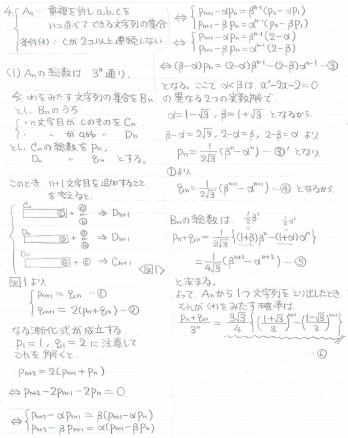 4 { An … 重複を許しa,b,cを
n個並べてできる文字列の集合
条件(*): cが2つ以上連続しない
(1) Anの総数は 3ⁿ通り.
今, (*)をみたす文字列の集合をBn
とし, Bnのうち
{ ・n文字目が cのものをCn
・ 〃 が aかb 〃 Dn
とし Cnの総数を pn,
Dn 〃 qn とする。
このとき, n+1文字目を追加すること
を考えると.
Cn ⓒ + ⓐ ⓑ ⇒ Dn+1
Dn ⓐ + ⓐ ⓑ ⇒ Dn+1
Dn + ⓒ ⇒ Cn+1
<図1>
図1より,
{ pn+1 = qn …①
qn+1 = 2(pn+qn) …②
なる漸化式が成立する.
p1=1, q1=2 に注意して
これを解くと.
pn+2 = 2(pn+1+pn)
⇔ pn+2-2pn+1-2pn=0
⇔ { pn+2-αpn+1 = β(pn+1-αpn)
pn+2-βpn+1 = α(pn+1-βpn)
⇔ { pn+1-αpn = βⁿ⁻¹(p2-αp1)
pn+1-βpn = αⁿ⁻¹(p2-βp1)
⇔ { pn+1-αpn = βⁿ⁻¹(2-α)
pn+1-βpn = αⁿ⁻¹(2-β)
⇔ (β-α)pn = (2-α)βⁿ⁻¹-(2-β)αⁿ⁻¹ …③
となる. ここで α<βは, x²-2x-2=0
の異なる2つの実数解で,
α=1-√3, β=1+√3 となるから.
β-α=2√3, 2-α=β, 2-β=α より
pn = 1/2√3 (βⁿ-αⁿ) …③' となり
①より,
qn = 1/2√3 (βⁿ⁺¹-αⁿ⁺¹) …④ となるから.
Bnの総数は, 1/2 β² 1/2 α²
pn+qn = 1/2√3 {(1+β)βⁿ-(1+α)αⁿ}
= 1/4√3 (βⁿ⁺²-αⁿ⁺²) …⑤
と求まる.
よって, Anから1つ文字列をとり出したとき
それが(*)をみたす確率は,
pn+qn/3ⁿ = 3√3/4 {(1+√3/3)ⁿ⁺²-(1-√3/3)ⁿ⁺²}
…⑥